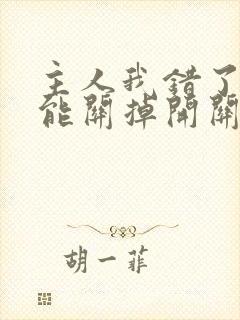 主人我错了
能關掉開關
胡一菲